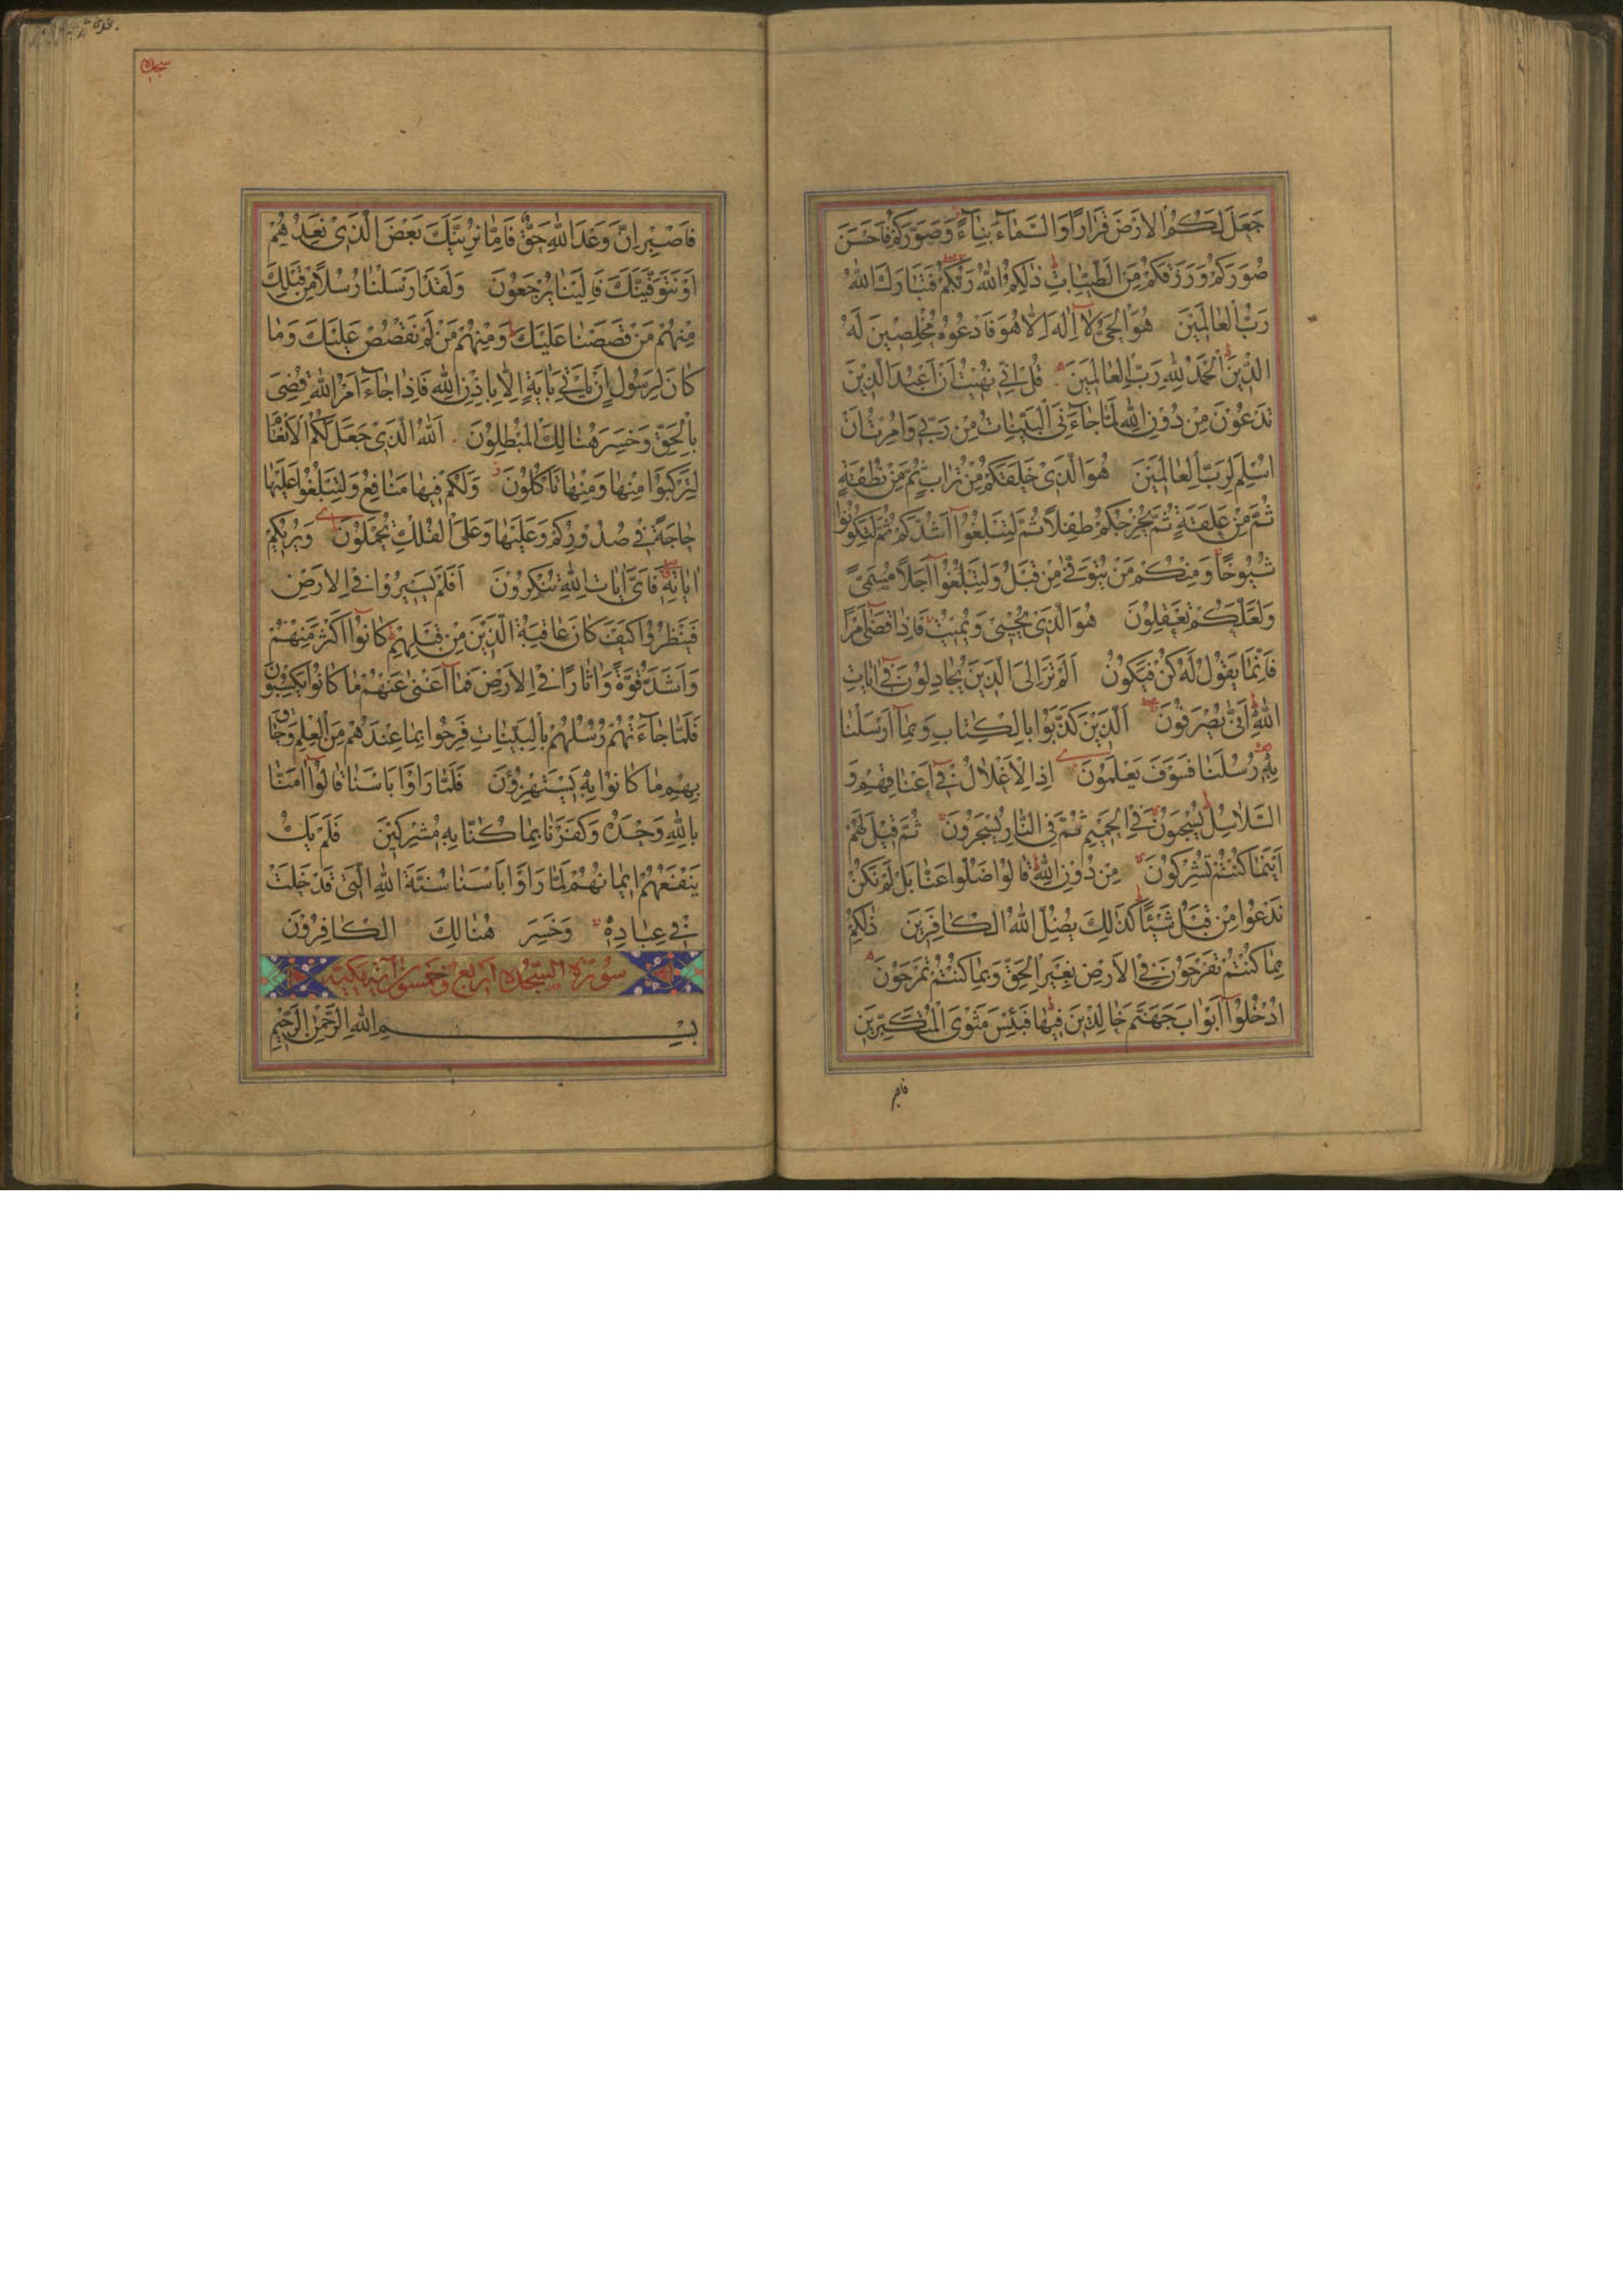 جَعَلَ لَكُمُ الْاَرْضَ قَرَارًا وَالسَّمَاءَ بِنَاءً وَصَوَّرَكُمْ فَاَحْسَنَ
صُوَرَكُمْ وَرَزَقَكُمْ مِنَ الطَّيِّبَاتِ ذٰلِكُمُ اللّٰهُ رَبُّكُمْ فَتَبَارَكَ اللّٰهُ
رَبُّ الْعَالَمِينَ هُوَ الْحَيُّ لَا اِلٰهَ اِلَّا هُوَ فَادْعُوهُ مُخْلِصِينَ لَهُ
الدِّينَ اَلْحَمْدُ لِلّٰهِ رَبِّ الْعَالَمِينَ قُلْ اِنِّي نُهِيتُ اَنْ اَعْبُدَ الَّذِينَ
تَدْعُونَ مِنْ دُونِ اللّٰهِ لَمَّا جَاءَنِيَ الْبَيِّنَاتُ مِنْ رَبِّي وَاُمِرْتُ اَنْ
اُسْلِمَ لِرَبِّ الْعَالَمِينَ هُوَ الَّذِي خَلَقَكُمْ مِنْ تُرَابٍ ثُمَّ مِنْ نُطْفَةٍ
ثُمَّ مِنْ عَلَقَةٍ ثُمَّ يُخْرِجُكُمْ طِفْلًا ثُمَّ لِتَبْلُغُوا اَشُدَّكُمْ ثُمَّ لِتَكُونُوا
شُيُوخًا وَمِنْكُمْ مَنْ يُتَوَفّٰى مِنْ قَبْلُ وَلِتَبْلُغُوا اَجَلًا مُسَمًّى
وَلَعَلَّكُمْ تَعْقِلُونَ هُوَ الَّذِي يُحْيِي وَيُمِيتُ فَاِذَا قَضٰى اَمْرًا
فَاِنَّمَا يَقُولُ لَهُ كُنْ فَيَكُونُ اَلَمْ تَرَ اِلَى الَّذِينَ يُجَادِلُونَ فِي اٰيَاتِ
اللّٰهِ اَنّٰى يُصْرَفُونَ اَلَّذِينَ كَذَّبُوا بِالْكِتَابِ وَبِمَا اَرْسَلْنَا
بِهِ رُسُلَنَا فَسَوْفَ يَعْلَمُونَ اِذِ الْاَغْلَالُ فِي اَعْنَاقِهِمْ وَ
السَّلَاسِلُ يُسْحَبُونَ فِي الْحَمِيمِ ثُمَّ فِي النَّارِ يُسْجَرُونَ ثُمَّ قِيلَ لَهُمْ
اَيْنَمَا كُنْتُمْ تُشْرِكُونَ مِنْ دُونِ اللّٰهِ قَالُوا ضَلُّوا عَنَّا بَلْ لَمْ نَكُنْ
نَدْعُوا مِنْ قَبْلُ شَيْئًا كَذٰلِكَ يُضِلُّ اللّٰهُ الْكَافِرِينَ ذٰلِكُمْ
بِمَا كُنْتُمْ تَفْرَحُونَ فِي الْاَرْضِ بِغَيْرِ الْحَقِّ وَبِمَا كُنْتُمْ تَمْرَحُونَ
اُدْخُلُوا اَبْوَابَ جَهَنَّمَ خَالِدِينَ فِيهَا فَبِئْسَ مَثْوَى الْمُتَكَبِّرِينَ
سجده
فَاصْبِرْ اِنَّ وَعْدَ اللّٰهِ حَقٌّ فَاِمَّا نُرِيَنَّكَ بَعْضَ الَّذِي نَعِدُهُمْ
اَوْ نَتَوَفَّيَنَّكَ فَاِلَيْنَا يُرْجَعُونَ وَلَقَدْ اَرْسَلْنَا رُسُلًا مِنْ قَبْلِكَ
مِنْهُمْ مَنْ قَصَصْنَا عَلَيْكَ وَمِنْهُمْ مَنْ لَمْ نَقْصُصْ عَلَيْكَ وَمَا
كَانَ لِرَسُولٍ اَنْ يَأْتِيَ بِاٰيَةٍ اِلَّا بِاِذْنِ اللّٰهِ فَاِذَا جَاءَ اَمْرُ اللّٰهِ قُضِيَ
بِالْحَقِّ وَخَسِرَ هُنَالِكَ الْمُبْطِلُونَ اَللّٰهُ الَّذِي جَعَلَ لَكُمُ الْاَنْعَامَ
لِتَرْكَبُوا مِنْهَا وَمِنْهَا تَاْكُلُونَ وَلَكُمْ فِيهَا مَنَافِعُ وَلِتَبْلُغُوا عَلَيْهَا
حَاجَةً فِي صُدُورِكُمْ وَعَلَيْهَا وَعَلَى الْفُلْكِ تُحْمَلُونَ وَيُرِيكُمْ
اٰيَاتِهِ فَاَيَّ اٰيَاتِ اللّٰهِ تُنْكِرُونَ اَفَلَمْ يَسِيرُوا فِي الْاَرْضِ
فَيَنْظُرُوا كَيْفَ كَانَ عَاقِبَةُ الَّذِينَ مِنْ قَبْلِهِمْ كَانُوا اَكْثَرَ مِنْهُمْ
وَاَشَدَّ قُوَّةً وَاٰثَارًا فِي الْاَرْضِ فَمَا اَغْنٰى عَنْهُمْ مَا كَانُوا يَكْسِبُونَ
فَلَمَّا جَاءَتْهُمْ رُسُلُهُمْ بِالْبَيِّنَاتِ فَرِحُوا بِمَا عِنْدَهُمْ مِنَ الْعِلْمِ وَحَاقَ
بِهِمْ مَا كَانُوا بِهِ يَسْتَهْزِؤُنَ فَلَمَّا رَاَوْا بَاْسَنَا قَالُوا اٰمَنَّا
بِاللّٰهِ وَحْدَهُ وَكَفَرْنَا بِمَا كُنَّا بِهِ مُشْرِكِينَ فَلَمْ يَكُ
يَنْفَعُهُمْ اِيمَانُهُمْ لَمَّا رَاَوْا بَاْسَنَا سُنَّةَ اللّٰهِ الَّتِي قَدْ خَلَتْ
فِي عِبَادِهِ وَخَسِرَ هُنَالِكَ الْكَافِرُونَ
سُورَةُ السَّجْدَه اَرْبَع وَخَمْسُونَ اٰيَة مَكِّيَّة
بِسْمِ اللّٰهِ الرَّحْمٰنِ الرَّحِيمِ